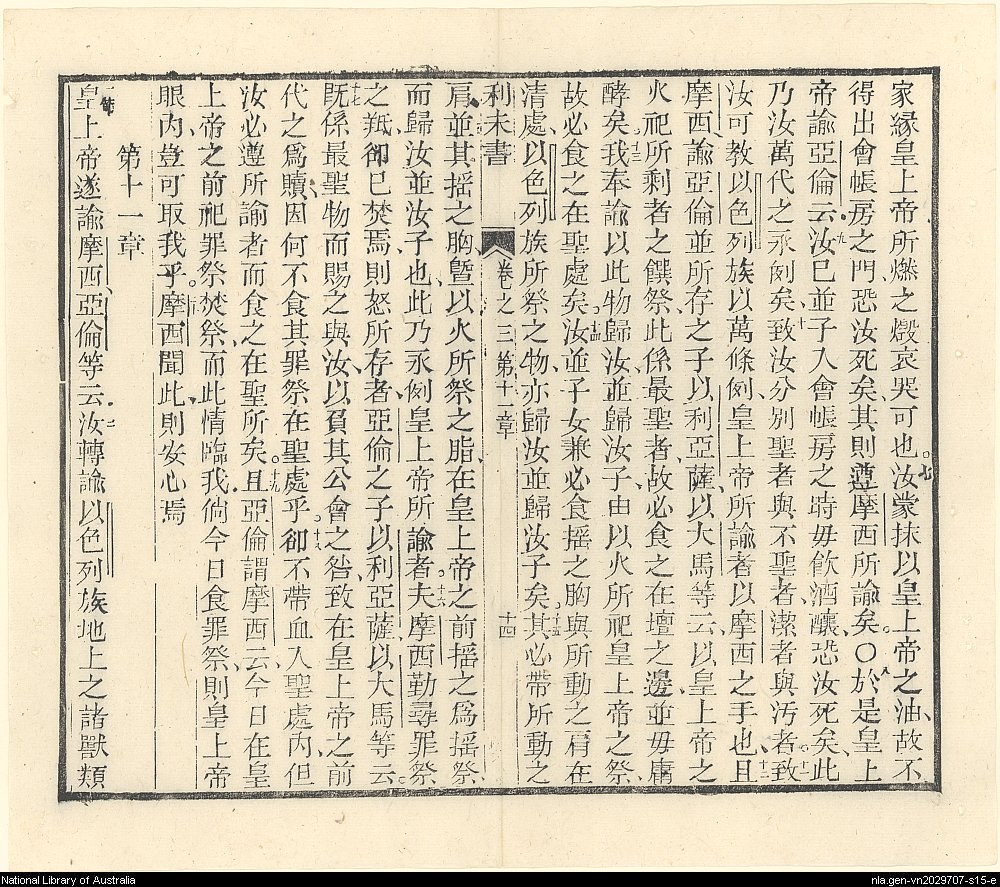 家緣皇上帝所燃之燬哀哭可也。七汝蒙抹以皇上帝之油、故不
得出會帳房之門恐汝死矣其則遵摩西所諭矣。○八於是皇上
帝諭亞倫云、九汝巳並子入會帳房之時毋飲酒釀、恐汝死矣、此
乃汝萬代之永例矣、十致汝分別聖者與不聖者、潔者與汚者、十一致
汝可教以色列族以萬條例皇上帝所諭者以摩西之手也、十二且
摩西諭亞倫並所存之子以利亞薩、以大馬等云、以皇上帝之
火祀所剩者之饌祭、此係最聖者、故必食之在壇之邊、並毋庸
酵矣。十三我奉諭以此物歸汝、並歸汝子、由以火所祀皇上帝之祭、
故必食之在聖處矣。十四汝並子女兼必食搖之胸與所動之肩在
清處、以色列族所祭之物、亦歸汝並歸汝子矣。十五其必帶所動之
利未書 卷之三第十章 十四
肩、並其搖之胸曁以火所祭之脂、在皇上帝之前搖之爲搖祭、
而歸汝並汝子也、此乃永例皇上帝所諭者。十六夫摩西勤尋罪祭
之羝、卻巳焚焉、則怒所存者、亞倫之子以利亞薩、以大馬等云。
十七既係最聖物而賜之與汝、以負其公會之咎、致在皇上帝之前
代之爲贖、因何不食其罪祭在聖處乎。十八卻不帶血入聖處內、但
汝必遵所諭者而食之在聖所矣。十九且亞倫謂摩西云、今日在皇
上帝之前祀罪祭焚祭、而此情臨我、倘今日食罪祭、則皇上帝
眼內、豈可取我乎。二十摩西聞此、則安心焉
第十一章
一皇上帝遂諭摩西、亞倫等云、二汝轉諭以色列族地上之諸獸類
National Library of Australia
nla.gen-vn2029707-s15-e